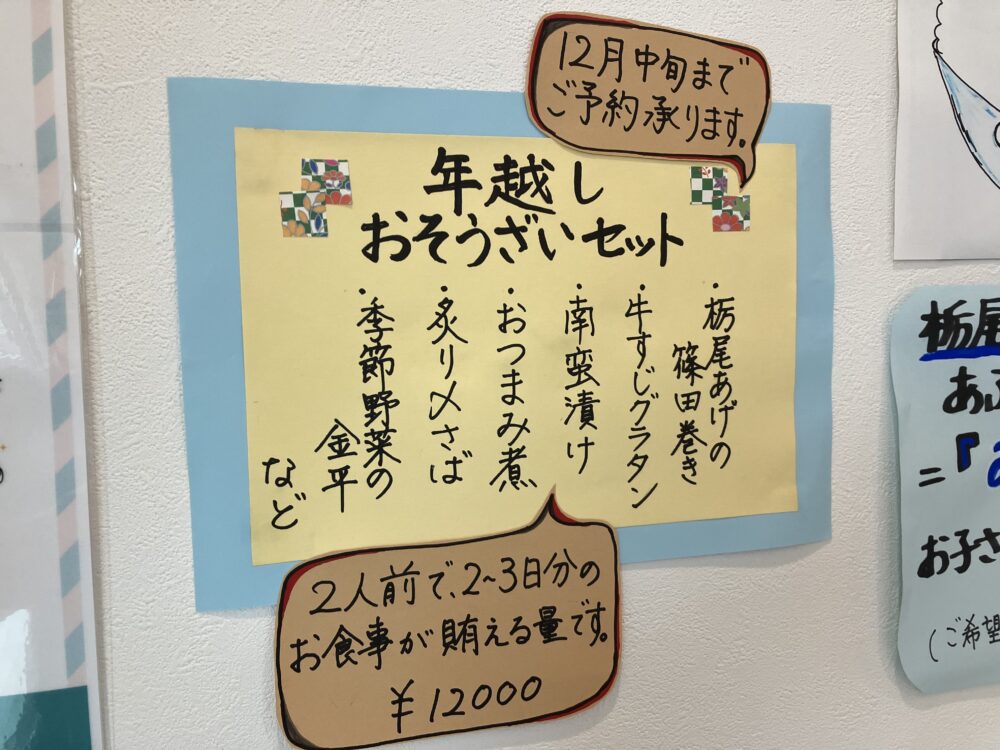 12月中旬まで
ご予約承ります。
年越し
おそうざいセット
・栃尾あげの
篠田巻き
・牛すじグラタン
・南蛮漬け
・おつまみ煮
・炙り〆さば
・季節野菜の
金平
など
2人前で、2~3日分の
お食事が賄える量です。
¥12000
栃尾
あぶ
=『
お子さ
(ご希望